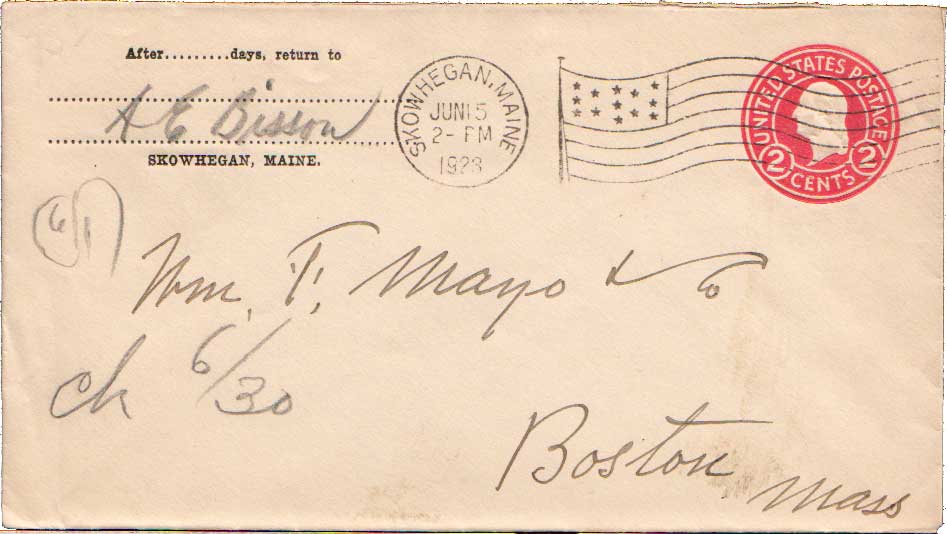 After.........days, return to
A E Bisson
SKOWHEGAN, MAINE.
SKOWHEGAN, MAINE
JUN 15
2- PM
1923
UNITED STATES POSTAGE
2 CENTS 2
6/1
Wm. T. Mayo & Co
ch 6/30
Boston
Mass